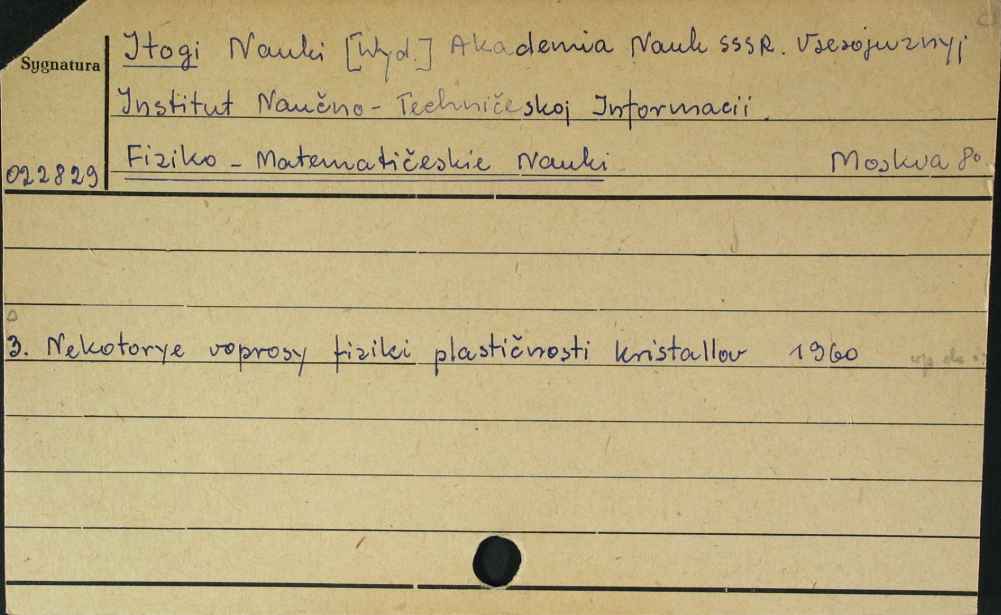 Itogi Nauki [Wyd.] Akademia Nauk SSSR. Vsesojuznyj
Sygnatura
Institut Naučno - Techničeskoj Informacii.
Fiziko - Matematičeskie Nauki Moskva 8°
022829
3. Nekotorye voprosy fiziki plastičnosti kristallov 1960